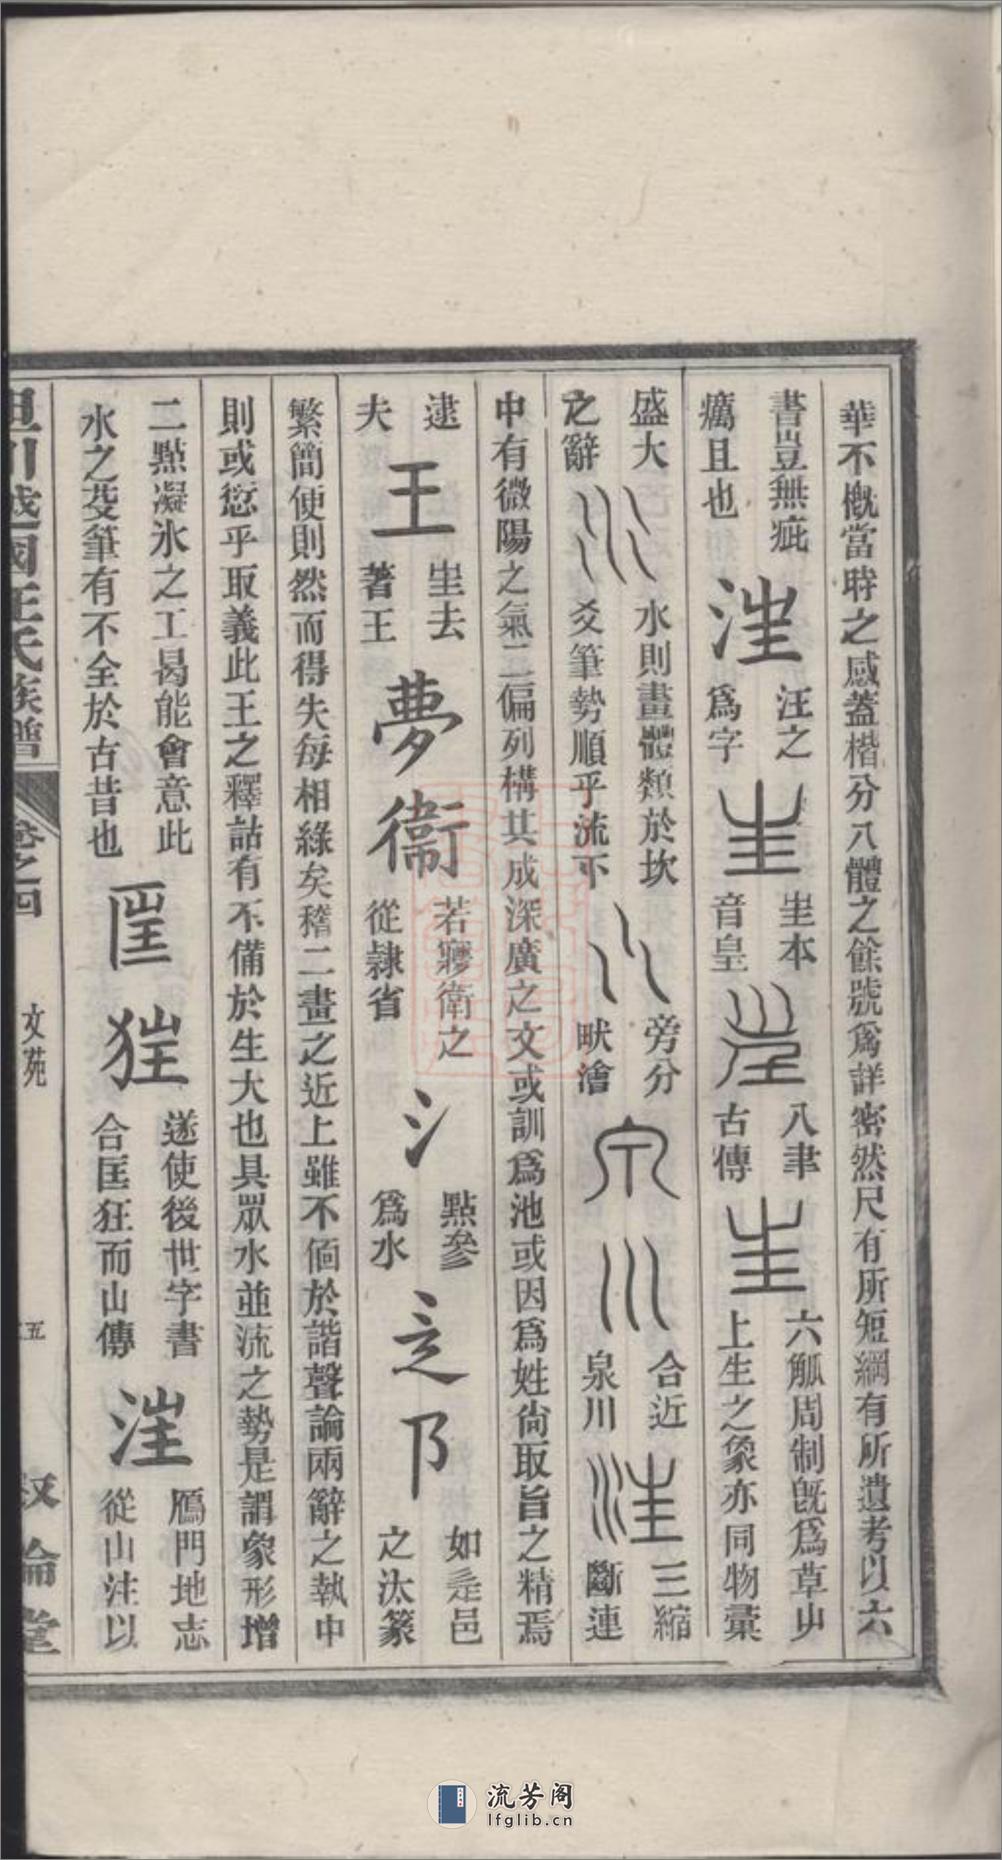 華不慨當時之感蓋楷分八體之餘號為詳密然尺有所短綱有所遺考以六
書豈無疵癘且也
汪之為字
㞷本音皇
八聿古傳
六觚周制旣為草屮上生之象亦同物彙
盛大之辭
水則畫體類於坎爻筆勢順乎流下
旁分畎澮
合近泉川
三縮斷連
中有微陽之氣二偏列構其成深廣之文或訓為池或因為姓尙取旨之精焉
逮夫
王
㞷去著王
夢
衞
若寢衛之從隸省
氵
點參為水
辵
阝
如辵邑之汰篆
繁簡便則然而得失每相緣矣稽二畫之近上雖不個於諧聲論兩辭之執中
則或愆乎取義此王之釋詁有不備於生大也具眾水並流之勢是謂象形增
二㸃凝氷之工曷能會意此水之茭筆有不全於古昔也
遂使後世字書合匡狂而山傳
鴈門地志從山注以
國汪氏族譜
卷之四
文苑
五
敘倫堂
流芳阁
lfglib.cn